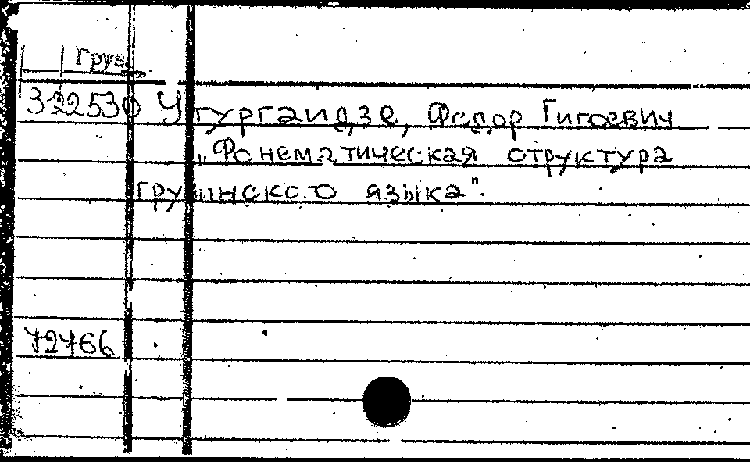 Груз.
332530 Утургаидзе, Федор Гигоевич
„Фонематическая структура
грузинского языка".
72766